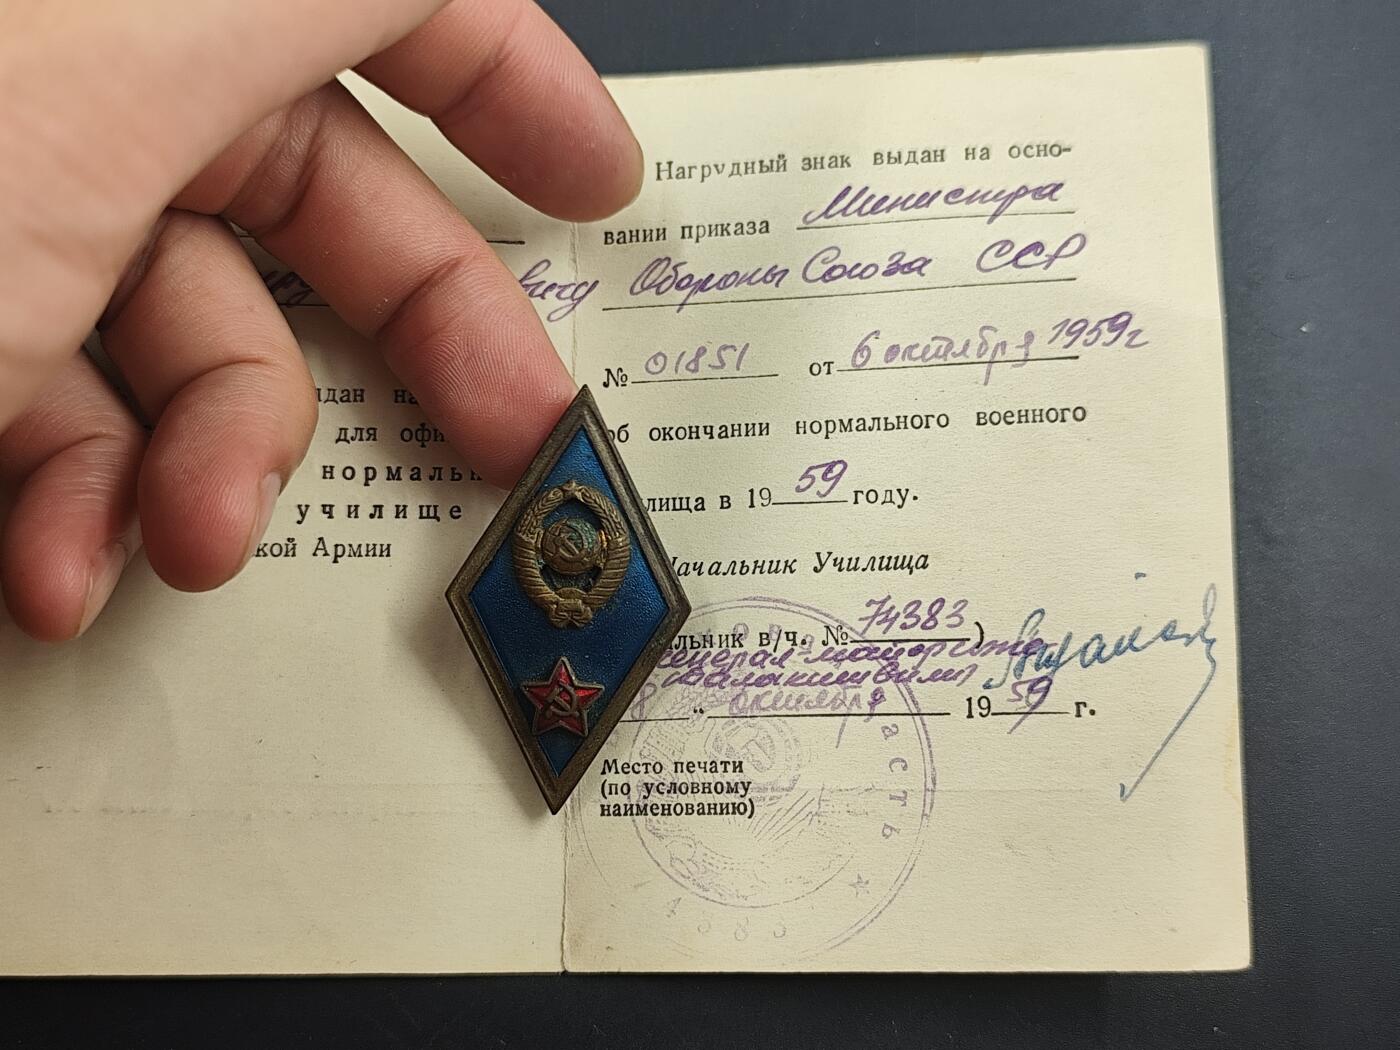 Нагрудный знак выдан на осно-
вании приказа Министра
вичу Обороны Союза ССР
№ 01851 от 6 октября 1959г
дан на
об окончании нормального военного
для офи
лища в 19 59 году.
нормальн
училище
Начальник Училища
кой Армии
альник в/ч. № 74383)
генерал-майор
8 " октября 19 59 г.
Место печати
(по условному
наименованию)
асть ★
4383